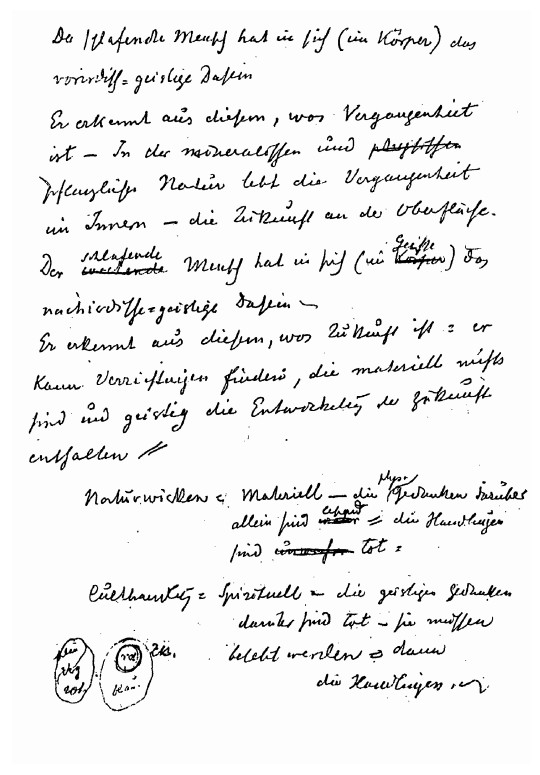 Der schlafende Mensch hat in sich (im Körper) das
vorirdisch=geistige Dasein
Er erkennt aus diesem, was Vergangenheit
ist – In der mineralischen und physischen
pflanzlichen Natur lebt die Vergangenheit
im Innern – die Zukunft an der Oberfläche.
Der schlafende wachende Mensch hat in sich (im Geiste Körper) das
nachirdisch=geistige Dasein –
Er erkennt aus diesem, was Zukunft ist = er
kann Verrichtungen finden, die materiell nichts
sind und geistig die Entwickelung der Zukunft
enthalten //
Naturwirken = Materiell – die Gedanken darüber
allein sind = die Handlungen
sind tot =
= Spirituell – die geistigen Gedanken
darüber sind tot – sie müssen
belebt werden = dann
die Handlungen.